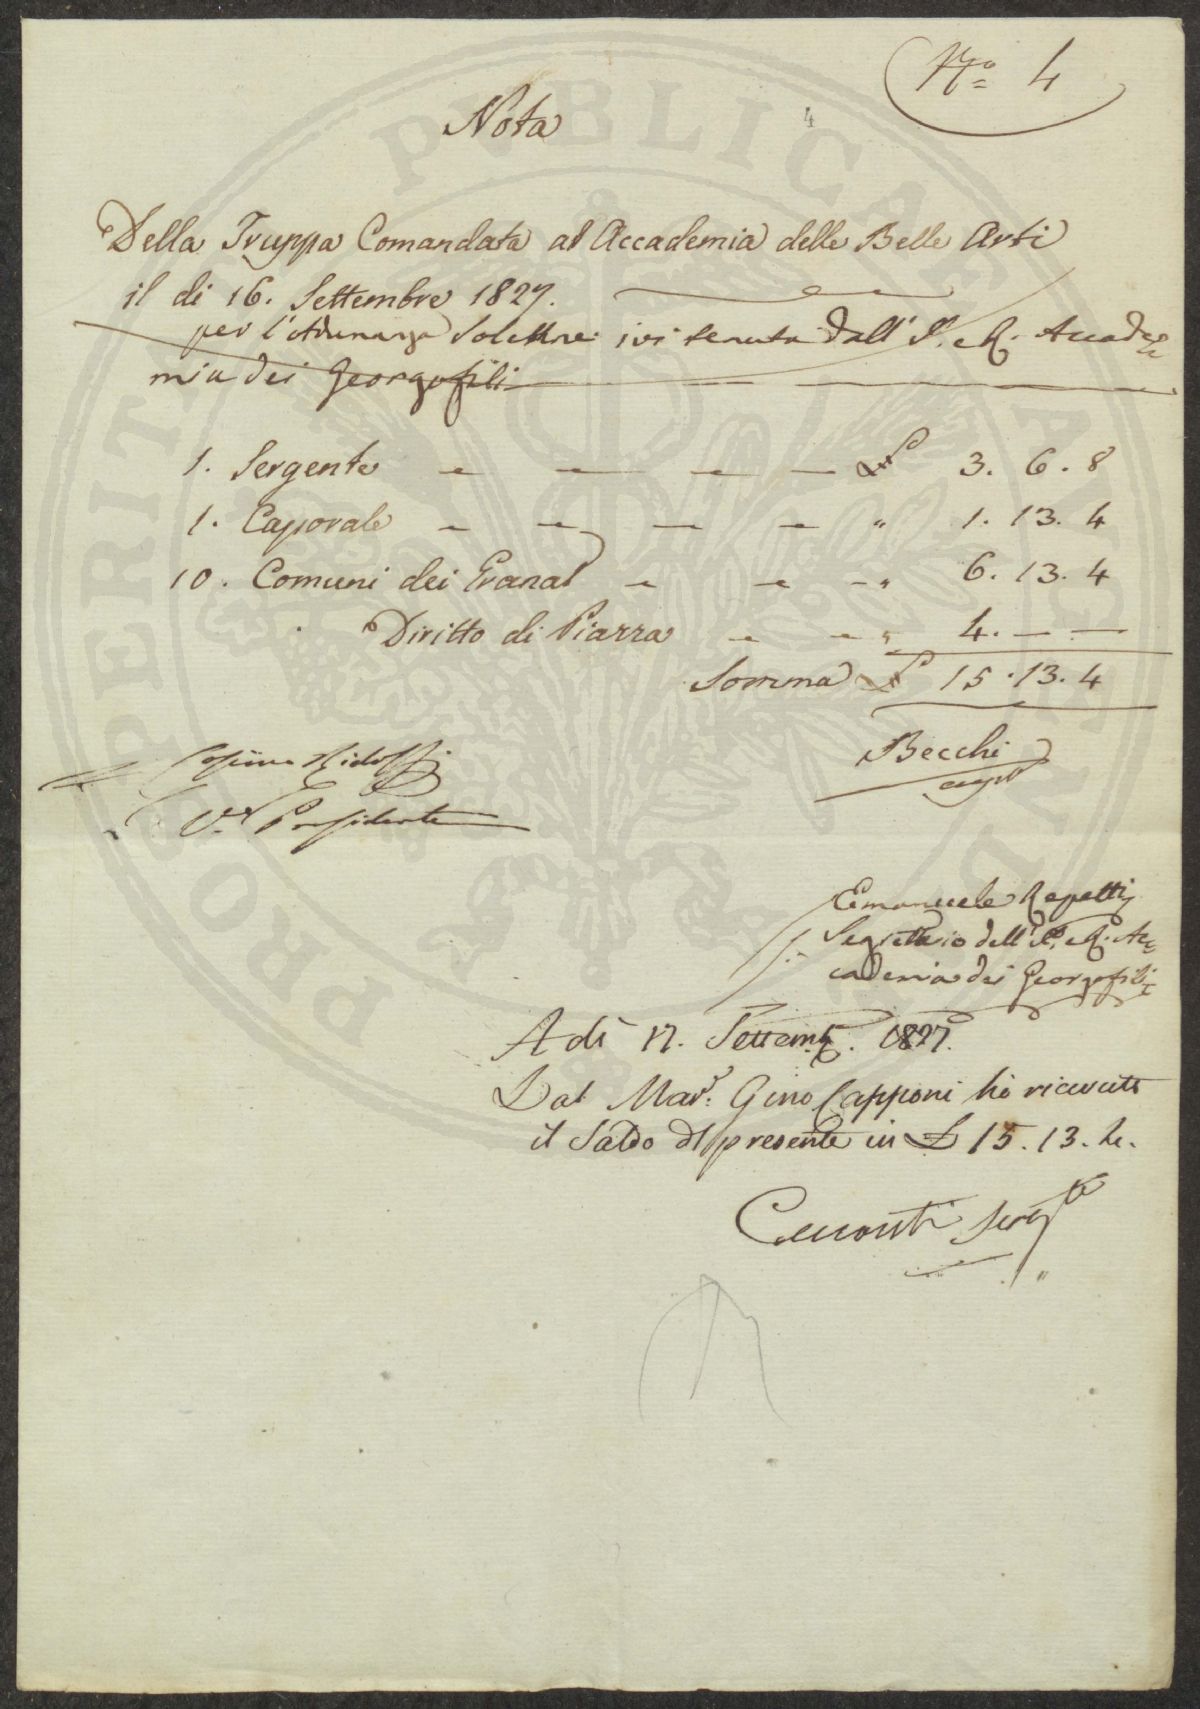 Nº 4
4
Nota
Della Truppa Comandata al Accademia delle Belle Arti
il di 16. Settembre 1827.
per l'Adunanza Solenne ivi tenuta dall' I. e R. Accade=
mia dei Georgofili
1. Sergente £ 3. 6. 8
1. Caporale " 1. 13. 4
10. Comuni dei Granat " 6. 13. 4
Diritto di Piazza " 4. — —
Somma £ 15. 13. 4
Becchi
Cosimo Ridolfi
V. Presidente
Emanuele Repetti
Segretario dell' I. e R. Ac=
cademia dei Georgofili
A dì 17. Settemb. 1827.
Dal Mar. Gino Capponi ho ricevuto
il Saldo del presente in £ 15. 13. 4.
Serg
PROSPERITATI PUBLICAE AUGENDAE